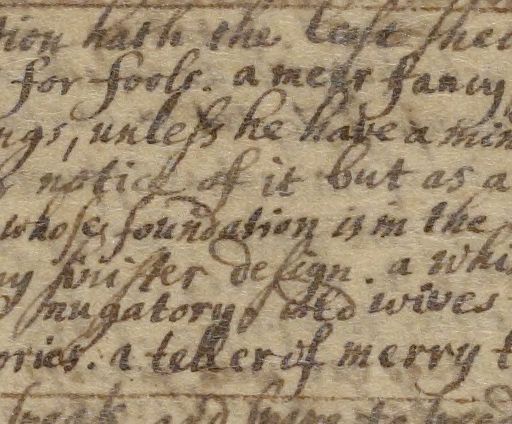 tion hath the least
for fools. a meer fancy
ngs, unless he have a min
notice of it but as a
whose foundation is in the
ny sinister design. a whi
nugatory, old wives
ories. a teller of merry t